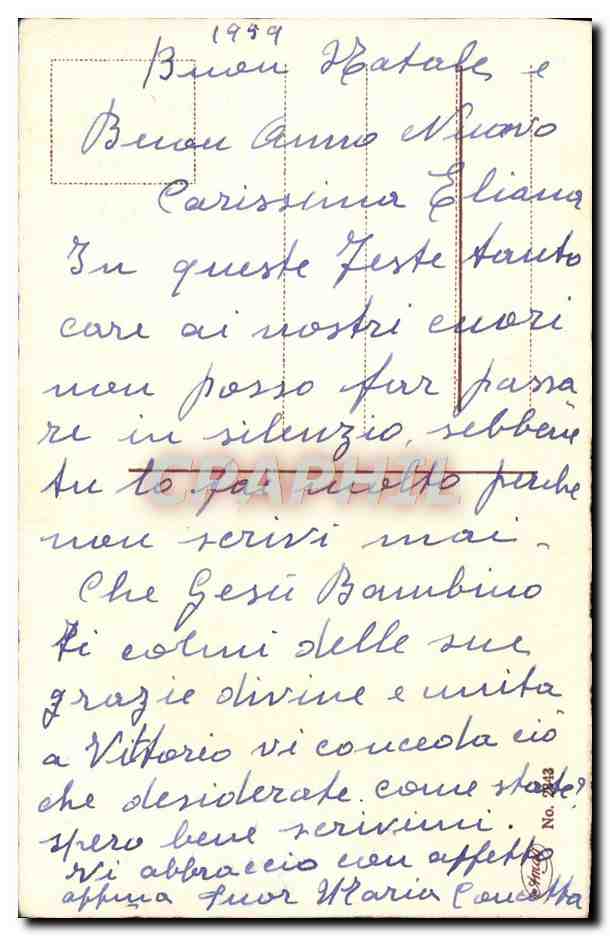 1959
Buon Natale e
Buon Anno Nuovo
Carissima Eliana
In queste Feste tanto
care ai nostri cuori
non posso far passa
re in silenzio, sebbene
tu lo fai molto perche
non scrivi mai -
Che Gesù Bambino
ti colmi delle sue
grazie divine e unita
a Vittorio vi conceda ciò
che desiderate. come state?
spero bene scrivimi.
Vi abbraccio con affetto
affma Suor Maria Concetta
No. 2243
CPAPHIL